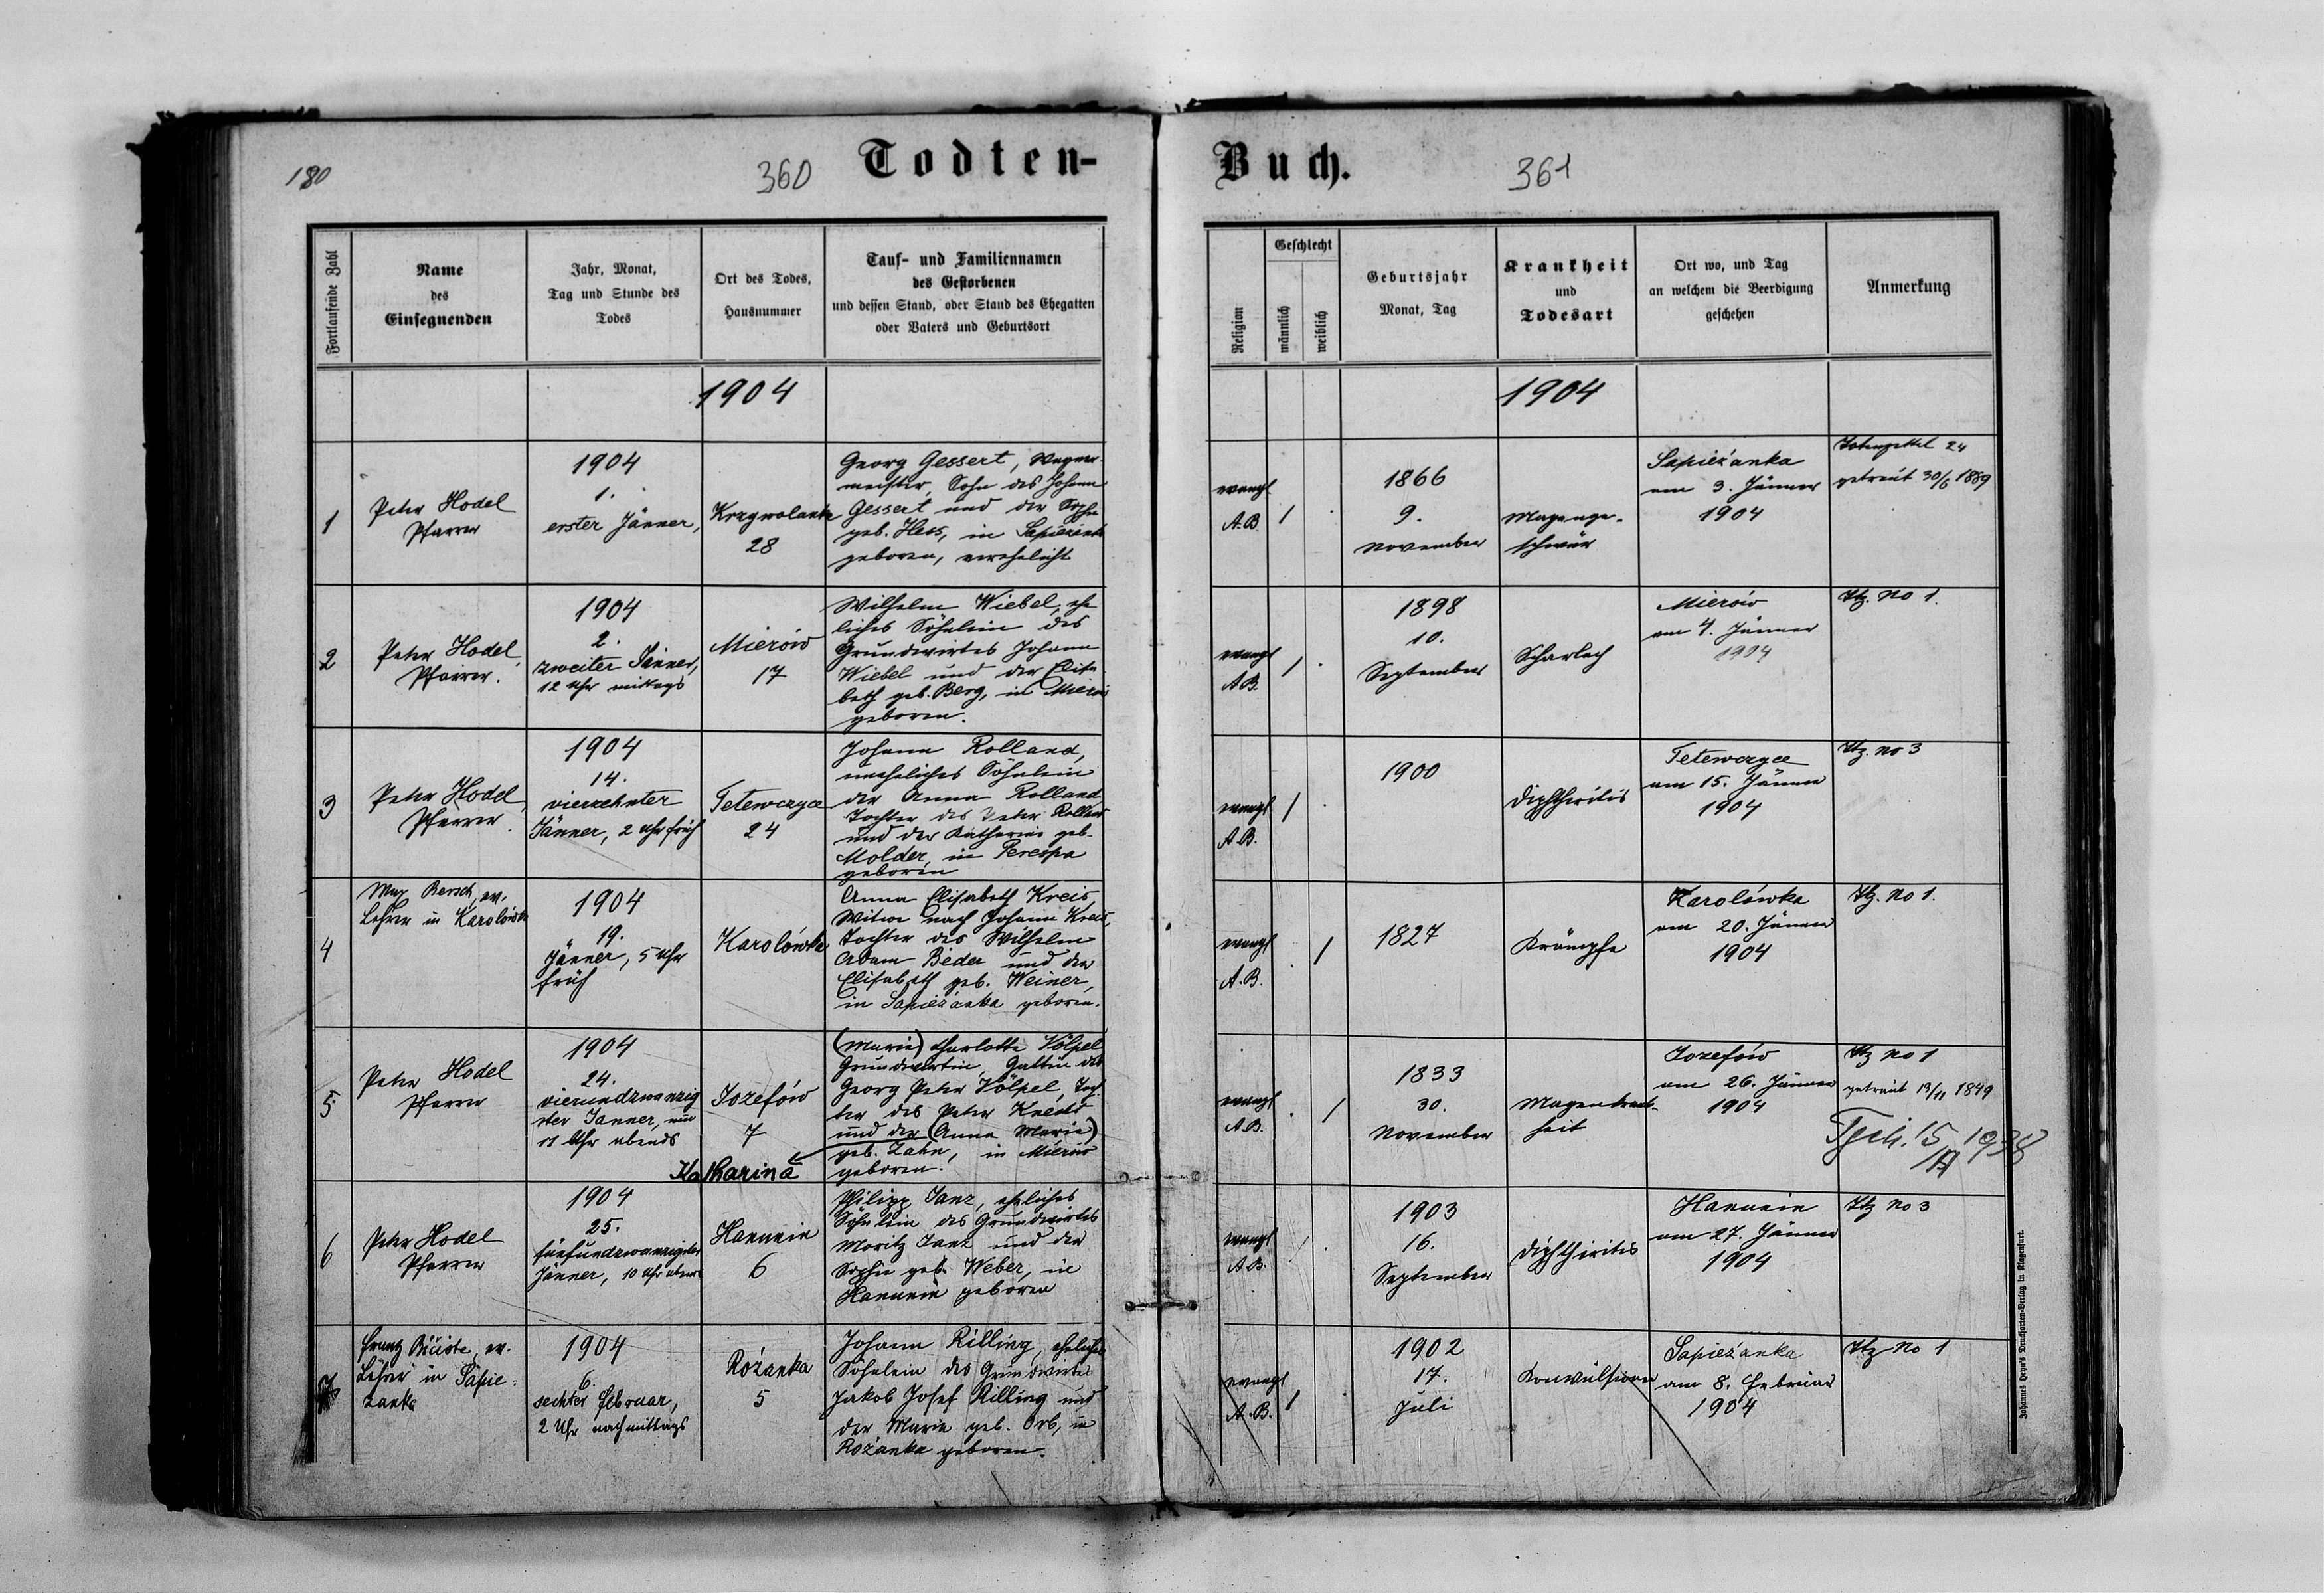 180
360
Todten-
Buch.
361
Fortlaufende Zahl
Name
des
Einsegnenden
Jahr, Monat,
Tag und Stunde des
Todes
Ort des Todes,
Hausnummer
Tauf- und Familiennamen
des Gestorbenen
und dessen Stand, oder Stand des Ehegatten
oder Vaters und Geburtsort
Religion
Geschlecht
männlich
weiblich
Geburtsjahr
Monat, Tag
Krankheit
und
Todesart
Ort wo, und Tag
an welchem die Beerdigung
geschehen
Anmerkung
1904
1904
1
Peter Hodel
Pfarrer
1904
1.
erster Jänner,
Krzywolanka
28
Georg Gessert, Wagner-
meister, Sohn des Johann
Gessert und der Sophie
geb. Hess, in Sapiezanka
geboren, verehelicht
evangl.
A.B.
1866
9.
November
Magenge-
schwür
Sapieżanka
am 3. Jänner
1904
Totenzettel 24
getraut 30/6 1889
2
Peter Hodel,
Pfarrer.
1904
2.
zweiter Jänner,
12 Uhr mittags
Mierów
17
Wilhelm Wiebel, ehe
liches Söhnlein des
Grundwirtes Johann
Wiebel und der Elisa
beth geb. Berg, in Mierów
geboren.
evangl
A.B.
1898
10.
September
Scharlach
Mierów
am 4. Jänner
1904
Ttz. No 1.
3
Peter Hodel,
Pfarrer.
1904
14.
vierzehnter
Jänner, 2 Uhr früh
Tetewczyce
24
Johann Rolland,
uneheliches Söhnlein
der Anna Rolland
Tochter des Peter Rolland
und der Katharina geb.
Molder, in Perespa
geboren
evangl
A.B.
1900
Diphtheritis
Tetewczyce
am 15. Jänner
1904
Ttz. No 3
4
Max Bersch, ev.
Lehrer in Karolówka
1904
19.
Jänner, 5 Uhr
früh
Karolówka
Anna Elisabeth Kreis,
Witwe nach Johann Kreis,
Tochter des Wilhelm
Adam Beder und der
Elisabeth geb. Weiner,
in Sapieżanka geboren.
evangl
A.B.
1827
Krämpfe
Karolówka
am 20. Jänner
1904
Ttz. No 1.
5
Peter Hodel
Pfarrer
1904
24.
vierundzwanzig
ster Janner, um
11 Uhr abends
Jozefów
7
(Marie) Charlotte Völpel
Grundwirtin, Gattin des
Georg Peter Völpel, Toch
ter des Peter
und der (Anna Marie)
geb. Zahn, in Mierów
geboren.
Katharina
evangl
A.B.
1833
30.
November
Magenkrank-
heit
Jozefów
am 26. Jänner
1904
Ttz No 1
getraut 13/11 1849
Tgch. 15/A 1938
6
Peter Hodel
Pfarrer
1904
25.
fünfundzwanzigster
Jänner, 10 Uhr abends
Hanunin
6
Philipp Janz, eheliches
Söhnlein des Grundwirtes
Moritz Janz und der
Sophie geb. Weber, in
Hanunin geboren
evangl
A.B.
1903
16.
September
Diphtheritis
Hanunin
am 27. Jänner
1904
Ttz No 3
7
Lehrer in Sapie-
zanka
1904
6.
sechster Februar,
2 Uhr nachmittags
Rożanka
5
Johann Rilling, eheliches
Söhnlein des Grundwirtes
Jakob Josef Rilling und
der Marie geb. Orb, in
Rożanka geboren.
evangl
A.B.
1902
17.
Juli
Konvulsionen
Sapieżanka
am 8. Februar
1904
Ttz No 1
Johannes Heyn's Drucksorten-Verlag in Klagenfurt.